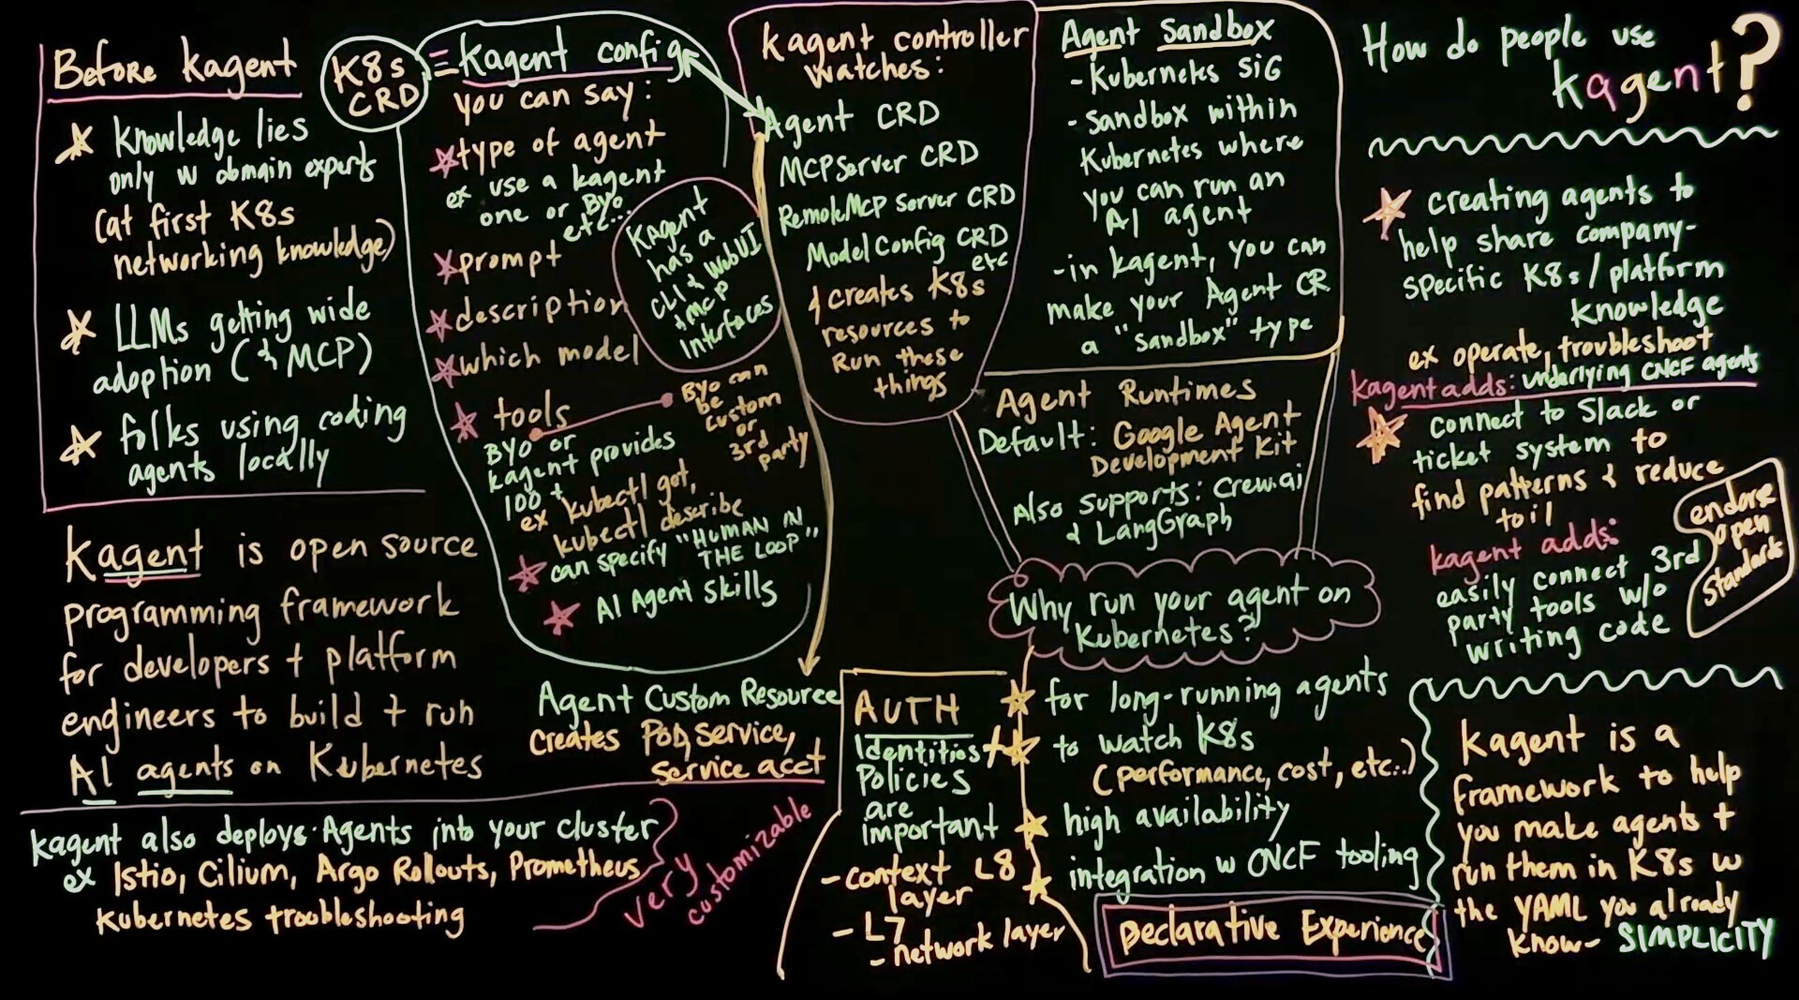 Before kagent
knowledge lies
only w domain experts
(at first K8s
networking knowledge)
LLMs getting wide
adoption (& MCP)
folks using coding
agents locally
kagent is open source
programming framework
for developers + platform
engineers to build + run
AI agents on Kubernetes
kagent also deploys Agents into your cluster
ex Istio, Cilium, Argo Rollouts, Prometheus
Kubernetes troubleshooting
very
customizable
K8s
CRD
= Kagent config
you can say:
type of agent
ex use a kagent
one or BYO
etc...
prompt
description
which model
tools
BYO or
kagent provides
100+
ex kubectl get,
kubectl describe
can specify "HUMAN IN
THE LOOP"
AI Agent Skills
KAgent
has a
CLI & WebUI
+ MCP
Interfaces
BYO can
be
custom
or
3rd
party
Agent Custom Resource
creates Pod, service,
service acct
Kagent controller
watches:
Agent CRD
MCPServer CRD
RemoteMCP Server CRD
ModelConfig CRD
etc
& creates K8s
resources to
Run these
things
Agent Sandbox
- Kubernetes SIG
- Sandbox within
Kubernetes where
you can run an
AI agent
- in kagent, you can
make your Agent CR
a "Sandbox" type
Agent Runtimes
Default: Google Agent
Development Kit
Also supports: Crew.ai
& LangGraph
Why run your agent on
Kubernetes?
for long-running agents
to watch K8s
(performance, cost, etc..)
high availability
integration w CNCF tooling
Declarative Experience
AUTH
Identities +
Policies
are
important
- context L8
layer
- L7
- network layer
How do people use
kagent?
creating agents to
help share company-
specific K8s / platform
knowledge
ex operate, troubleshoot
kagent adds: underlying CNCF agents
connect to Slack or
ticket system to
find patterns & reduce
toil
kagent adds:
easily connect 3rd
party tools w/o
writing code
endorse
open
standards
Kagent is a
framework to help
you make agents +
run them in K8s w
the YAML you already
know - SIMPLICITY